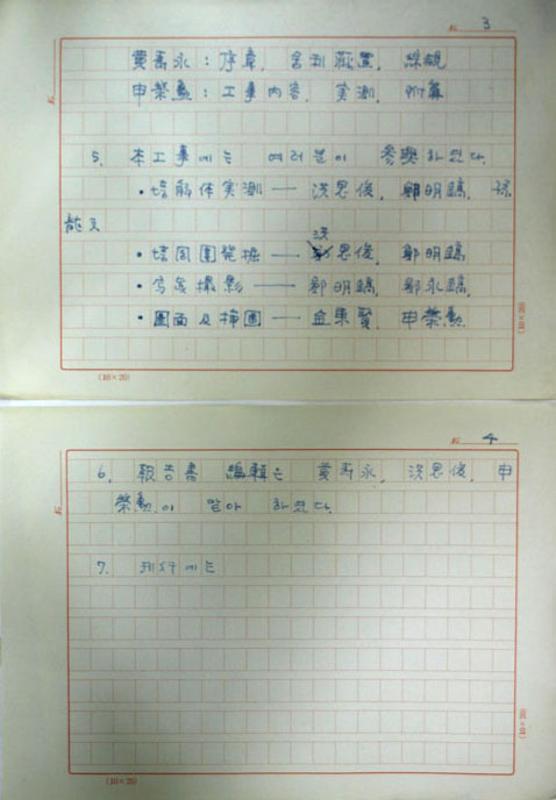 No. 3
黃壽永 : 序章, 舍利藏置, 綜觀
申榮勳 : 工事內容, 實測, 附篇
5. 本工事에는 여러분이 參與하였다.
• 塔解体実測 — 洪思俊, 鄭明鎬,
龍天
洪
• 塔周圍發掘 — 思俊, 鄭明鎬
• 写眞撮影 — 鄭明鎬, 鄭永鎬,
• 圖面及揷圖 — 金東賢, 申榮勳
(10×20)
No. 4
6. 報告書 編輯은 黃壽永, 洪思俊, 申
榮勳이 맡아 하였다.
7. 에는
(10×20)